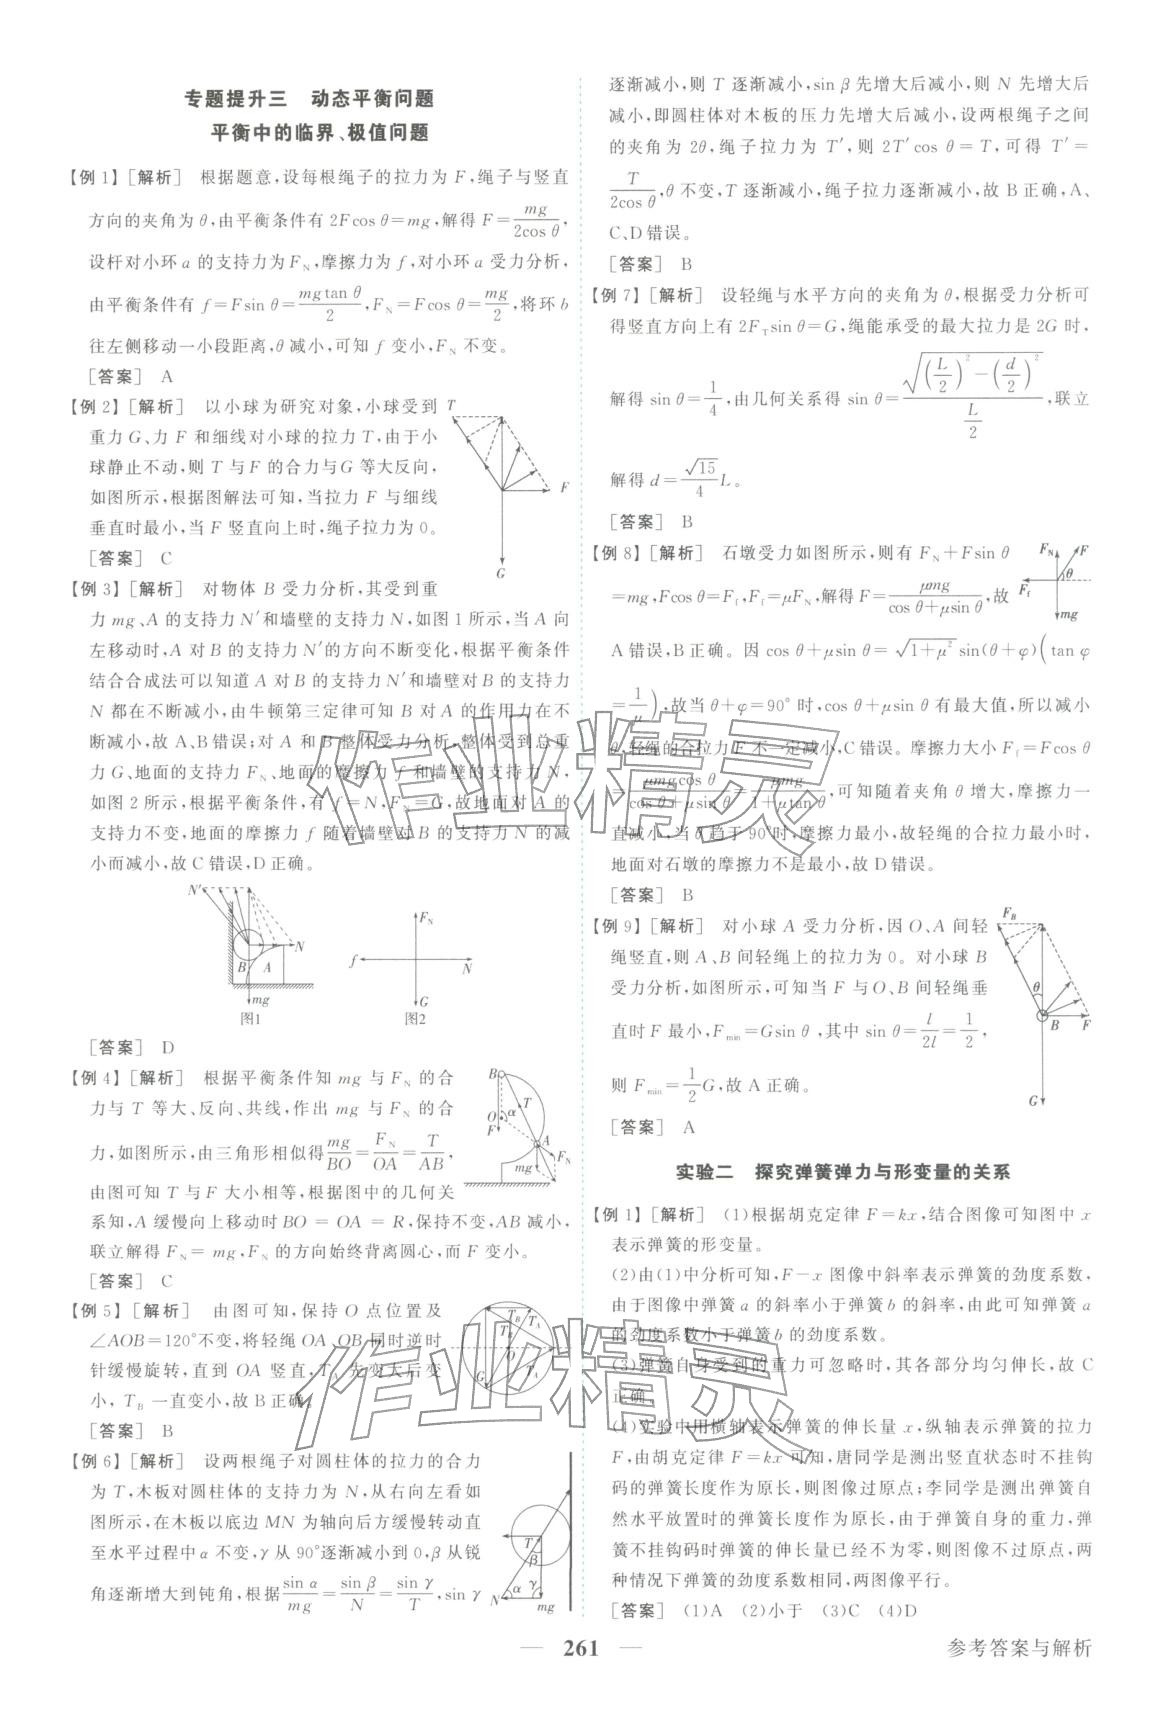 专题提升三　动态平衡问题
平衡中的临界、极值问题
【例 1】[解析]　根据题意,设每根绳子的拉力为 F,绳子与竖直
方向的夹角为 θ,由平衡条件有 2Fcos θ=mg,解得 F=mg/2cos θ,
设杆对小环 a 的支持力为 F_N,摩擦力为 f,对小环 a 受力分析,
由平衡条件有 f=Fsin θ=mgtan θ/2,F_N=Fcos θ=mg/2,将环 b
往左侧移动一小段距离,θ 减小,可知 f 变小,F_N 不变。
[答案]　A
【例 2】[解析]　以小球为研究对象,小球受到
重力 G、力 F 和细线对小球的拉力 T,由于小
球静止不动,则 T 与 F 的合力与 G 等大反向,
如图所示,根据图解法可知,当拉力 F 与细线
垂直时最小,当 F 竖直向上时,绳子拉力为 0。
T
F
G
[答案]　C
【例 3】[解析]　对物体 B 受力分析,其受到重
力 mg、A 的支持力 N′和墙壁的支持力 N,如图 1 所示,当 A 向
左移动时,A 对 B 的支持力 N′的方向不断变化,根据平衡条件
结合合成法可以知道 A 对 B 的支持力 N′和墙壁对 B 的支持力
N 都在不断减小,由牛顿第三定律可知 B 对 A 的作用力在不
断减小,故 A、B 错误;对 A 和 B 整体受力分析,整体受到总重
力 G、地面的支持力 F_N、地面的摩擦力 f 和墙壁的支持力 N,
如图 2 所示,根据平衡条件,有 f=N,F_N=G,故地面对 A 的
支持力不变,地面的摩擦力 f 随着墙壁对 B 的支持力 N 的减
小而减小,故 C 错误,D 正确。
N′
N
B
A
mg
图1
F_N
f
N
G
图2
[答案]　D
【例 4】[解析]　根据平衡条件知 mg 与 F_N 的合
力与 T 等大、反向、共线,作出 mg 与 F_N 的合
力,如图所示,由三角形相似得mg/BO=F_N/OA=T/AB,
由图可知 T 与 F 大小相等,根据图中的几何关
系知,A 缓慢向上移动时 BO = OA = R,保持不变,AB 减小,
联立解得 F_N= mg,F_N 的方向始终背离圆心,而 F 变小。
B
T
O
α
F
A
F_N
mg
[答案]　C
【例 5】[解析]　由图可知,保持 O 点位置及
∠AOB=120°不变,将轻绳 OA、OB 同时逆时
针缓慢旋转,直到 OA 竖直,T_A 先变大后变
小, T_B 一直变小,故 B 正确。
T_B
T_A
T_B
O
G
T_A
[答案]　B
【例 6】[解析]　设两根绳子对圆柱体的拉力的合力
为 T,木板对圆柱体的支持力为 N,从右向左看如
图所示,在木板以底边 MN 为轴向后方缓慢转动直
至水平过程中 α 不变,γ 从 90°逐渐减小到 0,β 从锐
角逐渐增大到钝角,根据sin α/mg=sin β/N=sin γ/T,sin γ
T
β
N
α
γ
mg
逐渐减小,则 T 逐渐减小,sin β 先增大后减小,则 N 先增大后
减小,即圆柱体对木板的压力先增大后减小,设两根绳子之间
的夹角为 2θ,绳子拉力为 T′,则 2T′cos θ = T,可得 T′=
T/2cos θ,θ 不变,T 逐渐减小,绳子拉力逐渐减小,故 B 正确,A、
C、D 错误。
[答案]　B
【例 7】[解析]　设轻绳与水平方向的夹角为 θ,根据受力分析可
得竖直方向上有 2F_Tsin θ=G,绳能承受的最大拉力是 2G 时,
解得 sin θ=1/4,由几何关系得 sin θ=√((L/2)²-(d/2)²)/(L/2),联立
解得 d=√15/4 L。
[答案]　B
【例 8】[解析]　石墩受力如图所示,则有 F_N+Fsin θ
=mg,Fcos θ=F_f,F_f=μF_N,解得 F=μmg/(cos θ+μsin θ),故
F_N
F
θ
F_f
mg
A 错误,B 正确。因 cos θ+μsin θ= √(1+μ²) sin(θ+φ)(tan φ
=1/μ),故当 θ+φ=90° 时,cos θ+μsin θ 有最大值,所以减小
θ,轻绳的合拉力 F 不一定减小,C 错误。摩擦力大小 F_f=Fcos θ
=μmgcos θ/(cos θ+μsin θ)=μmg/(1+μtan θ),可知随着夹角 θ 增大,摩擦力一
直减小,当 θ 趋于 90°时,摩擦力最小,故轻绳的合拉力最小时,
地面对石墩的摩擦力不是最小,故 D 错误。
[答案]　B
【例 9】[解析]　对小球 A 受力分析,因 O、A 间轻
绳竖直,则 A、B 间轻绳上的拉力为 0。对小球 B
受力分析,如图所示,可知当 F 与 O、B 间轻绳垂
直时 F 最小,F_min=Gsin θ ,其中 sin θ=l/2l=1/2,
则 F_min=1/2 G,故 A 正确。
F_B
θ
B
F
G
[答案]　A
实验二　探究弹簧弹力与形变量的关系
【例 1】[解析]　(1)根据胡克定律 F=kx,结合图像可知图中 x
表示弹簧的形变量。
(2)由(1)中分析可知,F-x 图像中斜率表示弹簧的劲度系数,
由于图像中弹簧 a 的斜率小于弹簧 b 的斜率,由此可知弹簧 a
的劲度系数小于弹簧 b 的劲度系数。
(3)弹簧自身受到的重力可忽略时,其各部分均匀伸长,故 C
正确。
(4)实验中用横轴表示弹簧的伸长量 x,纵轴表示弹簧的拉力
F,由胡克定律 F=kx 可知,唐同学是测出竖直状态时不挂钩
码的弹簧长度作为原长,则图像过原点;李同学是测出弹簧自
然水平放置时的弹簧长度作为原长,由于弹簧自身的重力,弹
簧不挂钩码时弹簧的伸长量已经不为零,则图像不过原点,两
种情况下弹簧的劲度系数相同,两图像平行。
[答案]　(1)A　(2)小于　(3)C　(4)D
作业精灵
作业精灵
— 261 —
参考答案与解析